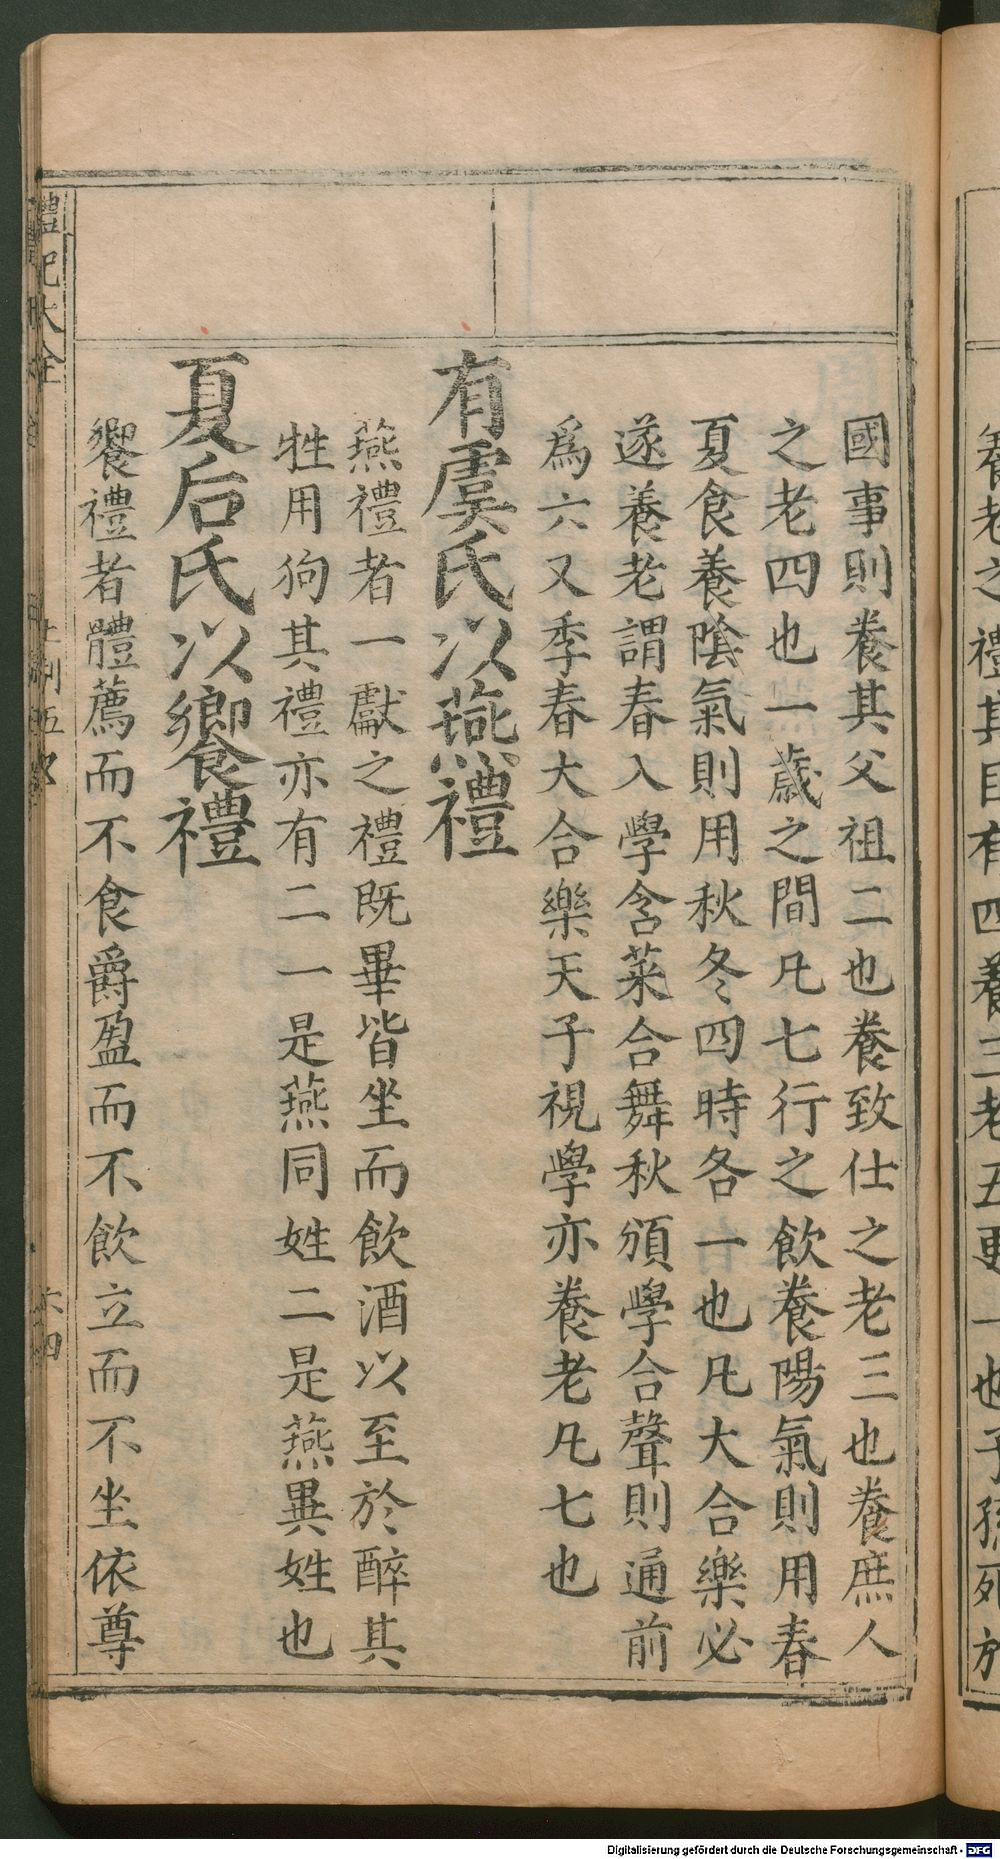 養老之禮其目有四養三老五更一也子孫死於
國事則養其父祖二也養致仕之老三也養庶人
之老四也一歲之間凡七行之飲養陽氣則用春
夏食養陰氣則用秋冬四時各一也凡大合樂必
遂養老謂春入學舍菜合舞秋頒學合聲則通前
爲六又季春大合樂天子視學亦養老凡七也
有虞氏以燕禮
燕禮者一獻之禮既畢皆坐而飲酒以至於醉其
牲用狗其禮亦有二一是燕同姓二是燕異姓也
夏后氏以饗禮
饗禮者體薦而不食爵盈而不飲立而不坐依尊
禮記大全
六四
Digitalisierung gefördert durch die Deutsche Forschungsgemeinschaft - DFG